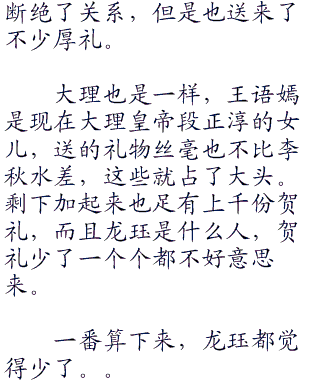 断绝了关系，但是也送来了
不少厚礼。
大理也是一样，王语嫣
是现在大理皇帝段正淳的女
儿，送的礼物丝毫也不比李
秋水差，这些就占了大头。
剩下加起来也足有上千份贺
礼，而且龙珏是什么人，贺
礼少了一个个都不好意思
来。
一番算下来，龙珏都觉
得少了。。